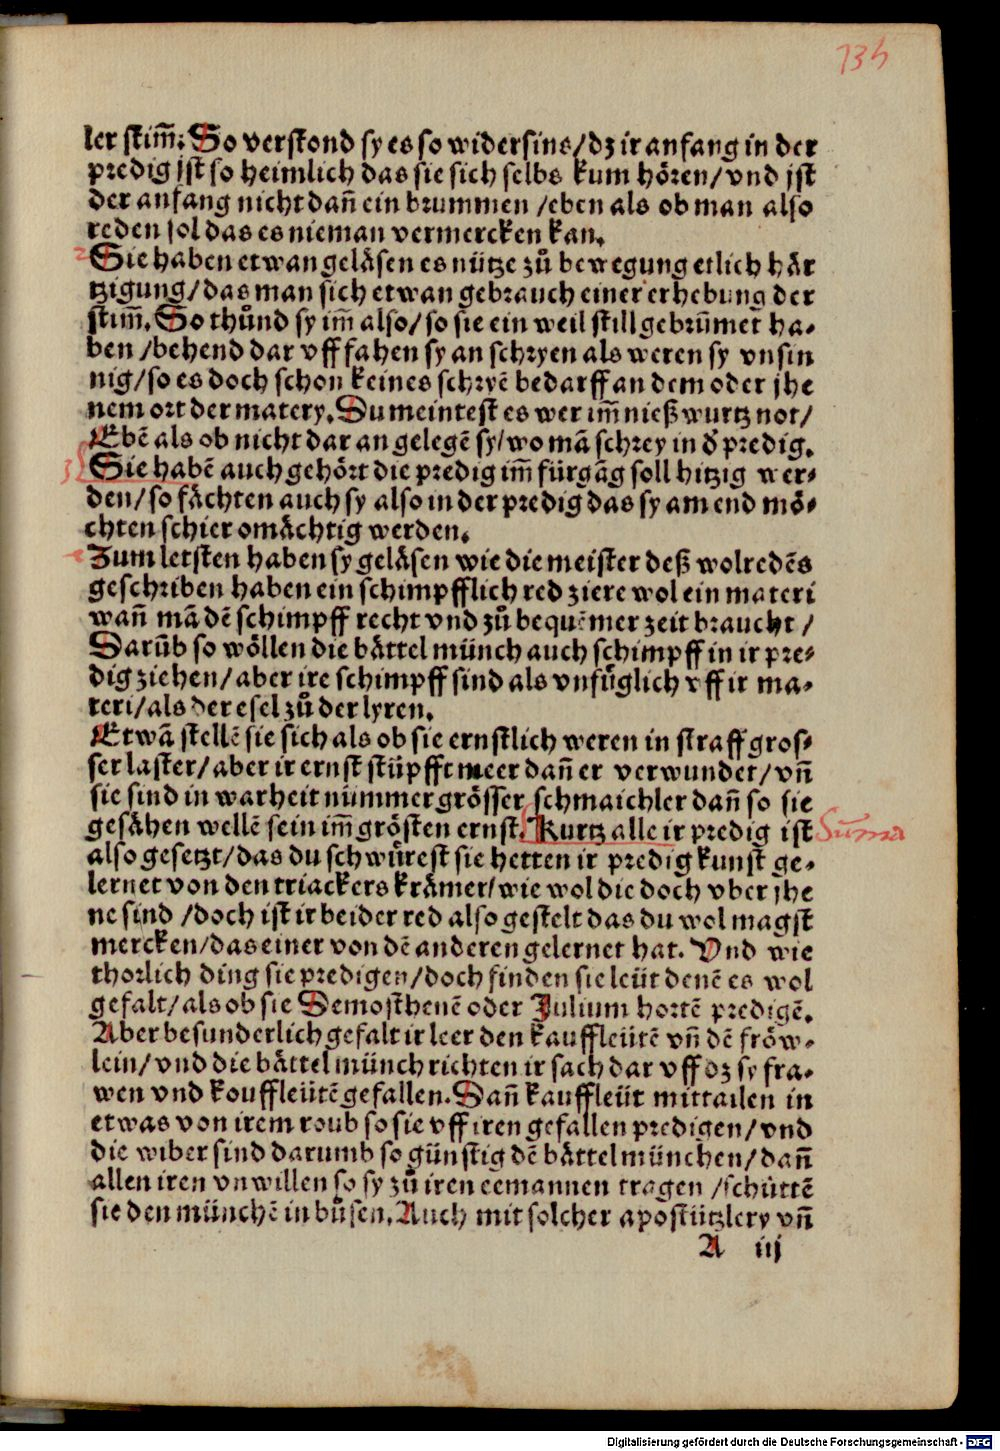 135
ler stim̃: So verstond sy es so widersins/dz ir anfang in der
predig jst so heimlich das sie sich selbs kum hören/vnd jst
der anfang nicht dañ ein brummen /eben als ob man also
reden sol das es nieman vermercken kan.
2 Sie haben etwan geläsen es nütze zů bewegung etlich här
tzigung/das man sich etwan gebrauch einer erhebung der
stim̃. So thůnd sy im̃ also/so sie ein weil still gebrům̃et ha-
ben /behend dar vff fahen sy an schryen als weren sy vnsin
nig/so es doch schon keines schryẽ bedarff an dem oder jhe
nem ort der matery. Du meintest es wer im̃ nieß wurtz not/
Ebẽ als ob nicht dar an gelegẽ sy/wo mã schrey in d̕ predig.
3 Sie habẽ auch gehört die predig im̃ fürgãg soll hitzig wer-
den/so fächten auch sy also in der predig das sy am end mö-
chten schier omächtig werden.
Zum letsten haben sy geläsen wie die meister deß wolredẽs
geschriben haben ein schimpfflich red ziere wol ein materi
wañ mã dẽ schimpff recht vnd zů bequẽmer zeit braucht /
Darũb so wöllen die bättel münch auch schimpff in ir pre-
dig ziehen/aber ire schimpff sind als vnfůglich vff ir ma-
teri/als der esel zů der lyren.
Etwã stellẽ sie sich als ob sie ernstlich weren in straff gros-
ser laster/aber ir ernst stüpfft meer dañ er verwundet/vñ
sie sind in warheit nümmer grösser schmaichler dañ so sie
gesähen wellẽ sein im̃ grösten ernst. Kurtz alle ir predig ist
Sum̃a
also gesetzt/das du schwürest sie hetten ir predig kunst ge-
lernet von den triackers krämer/wie wol die doch vber jhe
ne sind /doch ist ir beider red also gestelt das du wol magst
mercken/das einer von dẽ anderen gelernet hat. Vnd wie
thorlich ding sie predigen/doch finden sie leüt denẽ es wol
gefalt/als ob sie Demosthenẽ oder Julium hortẽ predigẽ.
Aber besunderlich gefalt ir leer den kauffleütẽ vñ dẽ fröw-
lein/vnd die bättel münch richten ir sach dar vff dz sy fra-
wen vnd kouffleütẽ gefallen. Dañ kauffleüt mittailen in
etwas von irem roub so sie vff iren gefallen predigen/vnd
die wiber sind darumb so günstig dẽ bättel münchen/dañ
allen iren vnwillen so sy zů iren eemannen tragen /schüttẽ
sie den münchẽ in bůsen. Auch mit solcher apostützlery vñ
A iij
Digitalisierung gefördert durch die Deutsche Forschungsgemeinschaft - DFG